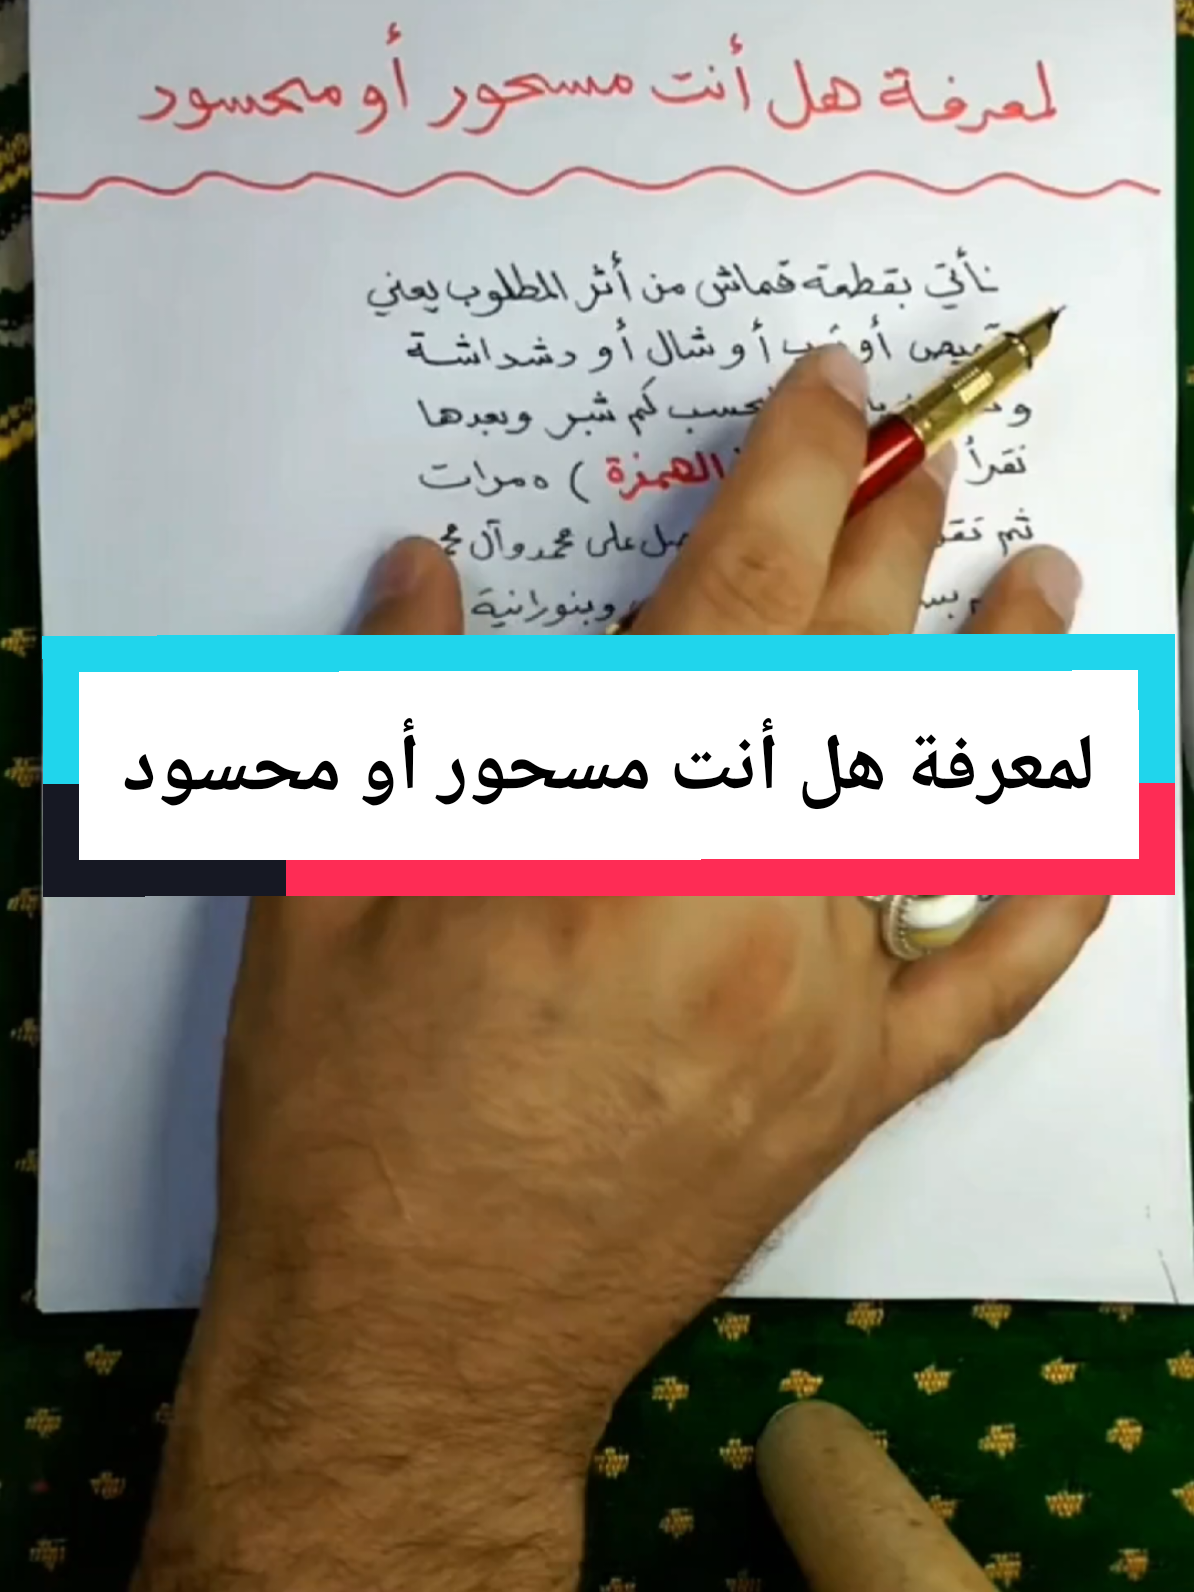 لمعرفة هل أنت مسحور أو محسود
نأتي بقطعة قماش من أثر المطلوب يعني
أو أو شال أو دشداشة
كم شبر وبعدها
نقرأ الهمزة ) ٥ مرات
ثم صل على محمد وآل
وبنورانية
لمعرفة هل أنت مسحور أو محسود